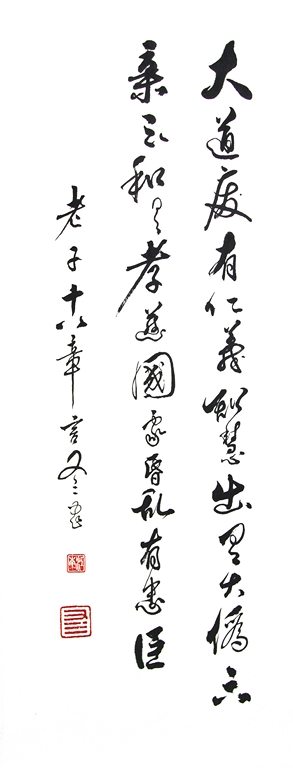 大道廢有仁義智慧出有大偽六
親不和有孝慈國家昏亂有忠臣
老子十八章言